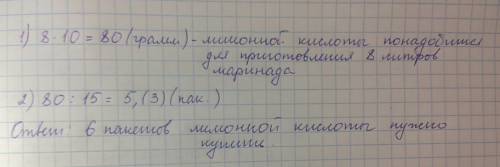 1) 8·10 = 80 (грамм) - лимонной кислоты понадобится
для приготовления 8 литров
маринада
2) 80 : 15 = 5,(3) (пак.)
Ответ: 6 пакетов лимонной кислоты нужно
купить.